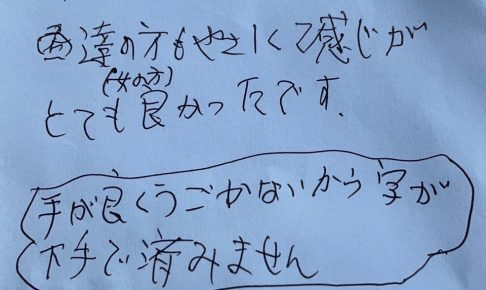 達の方もやさしくて感じが
(女の方)
とても良かったです.
手が良くうごかないから字が
下手で済みません